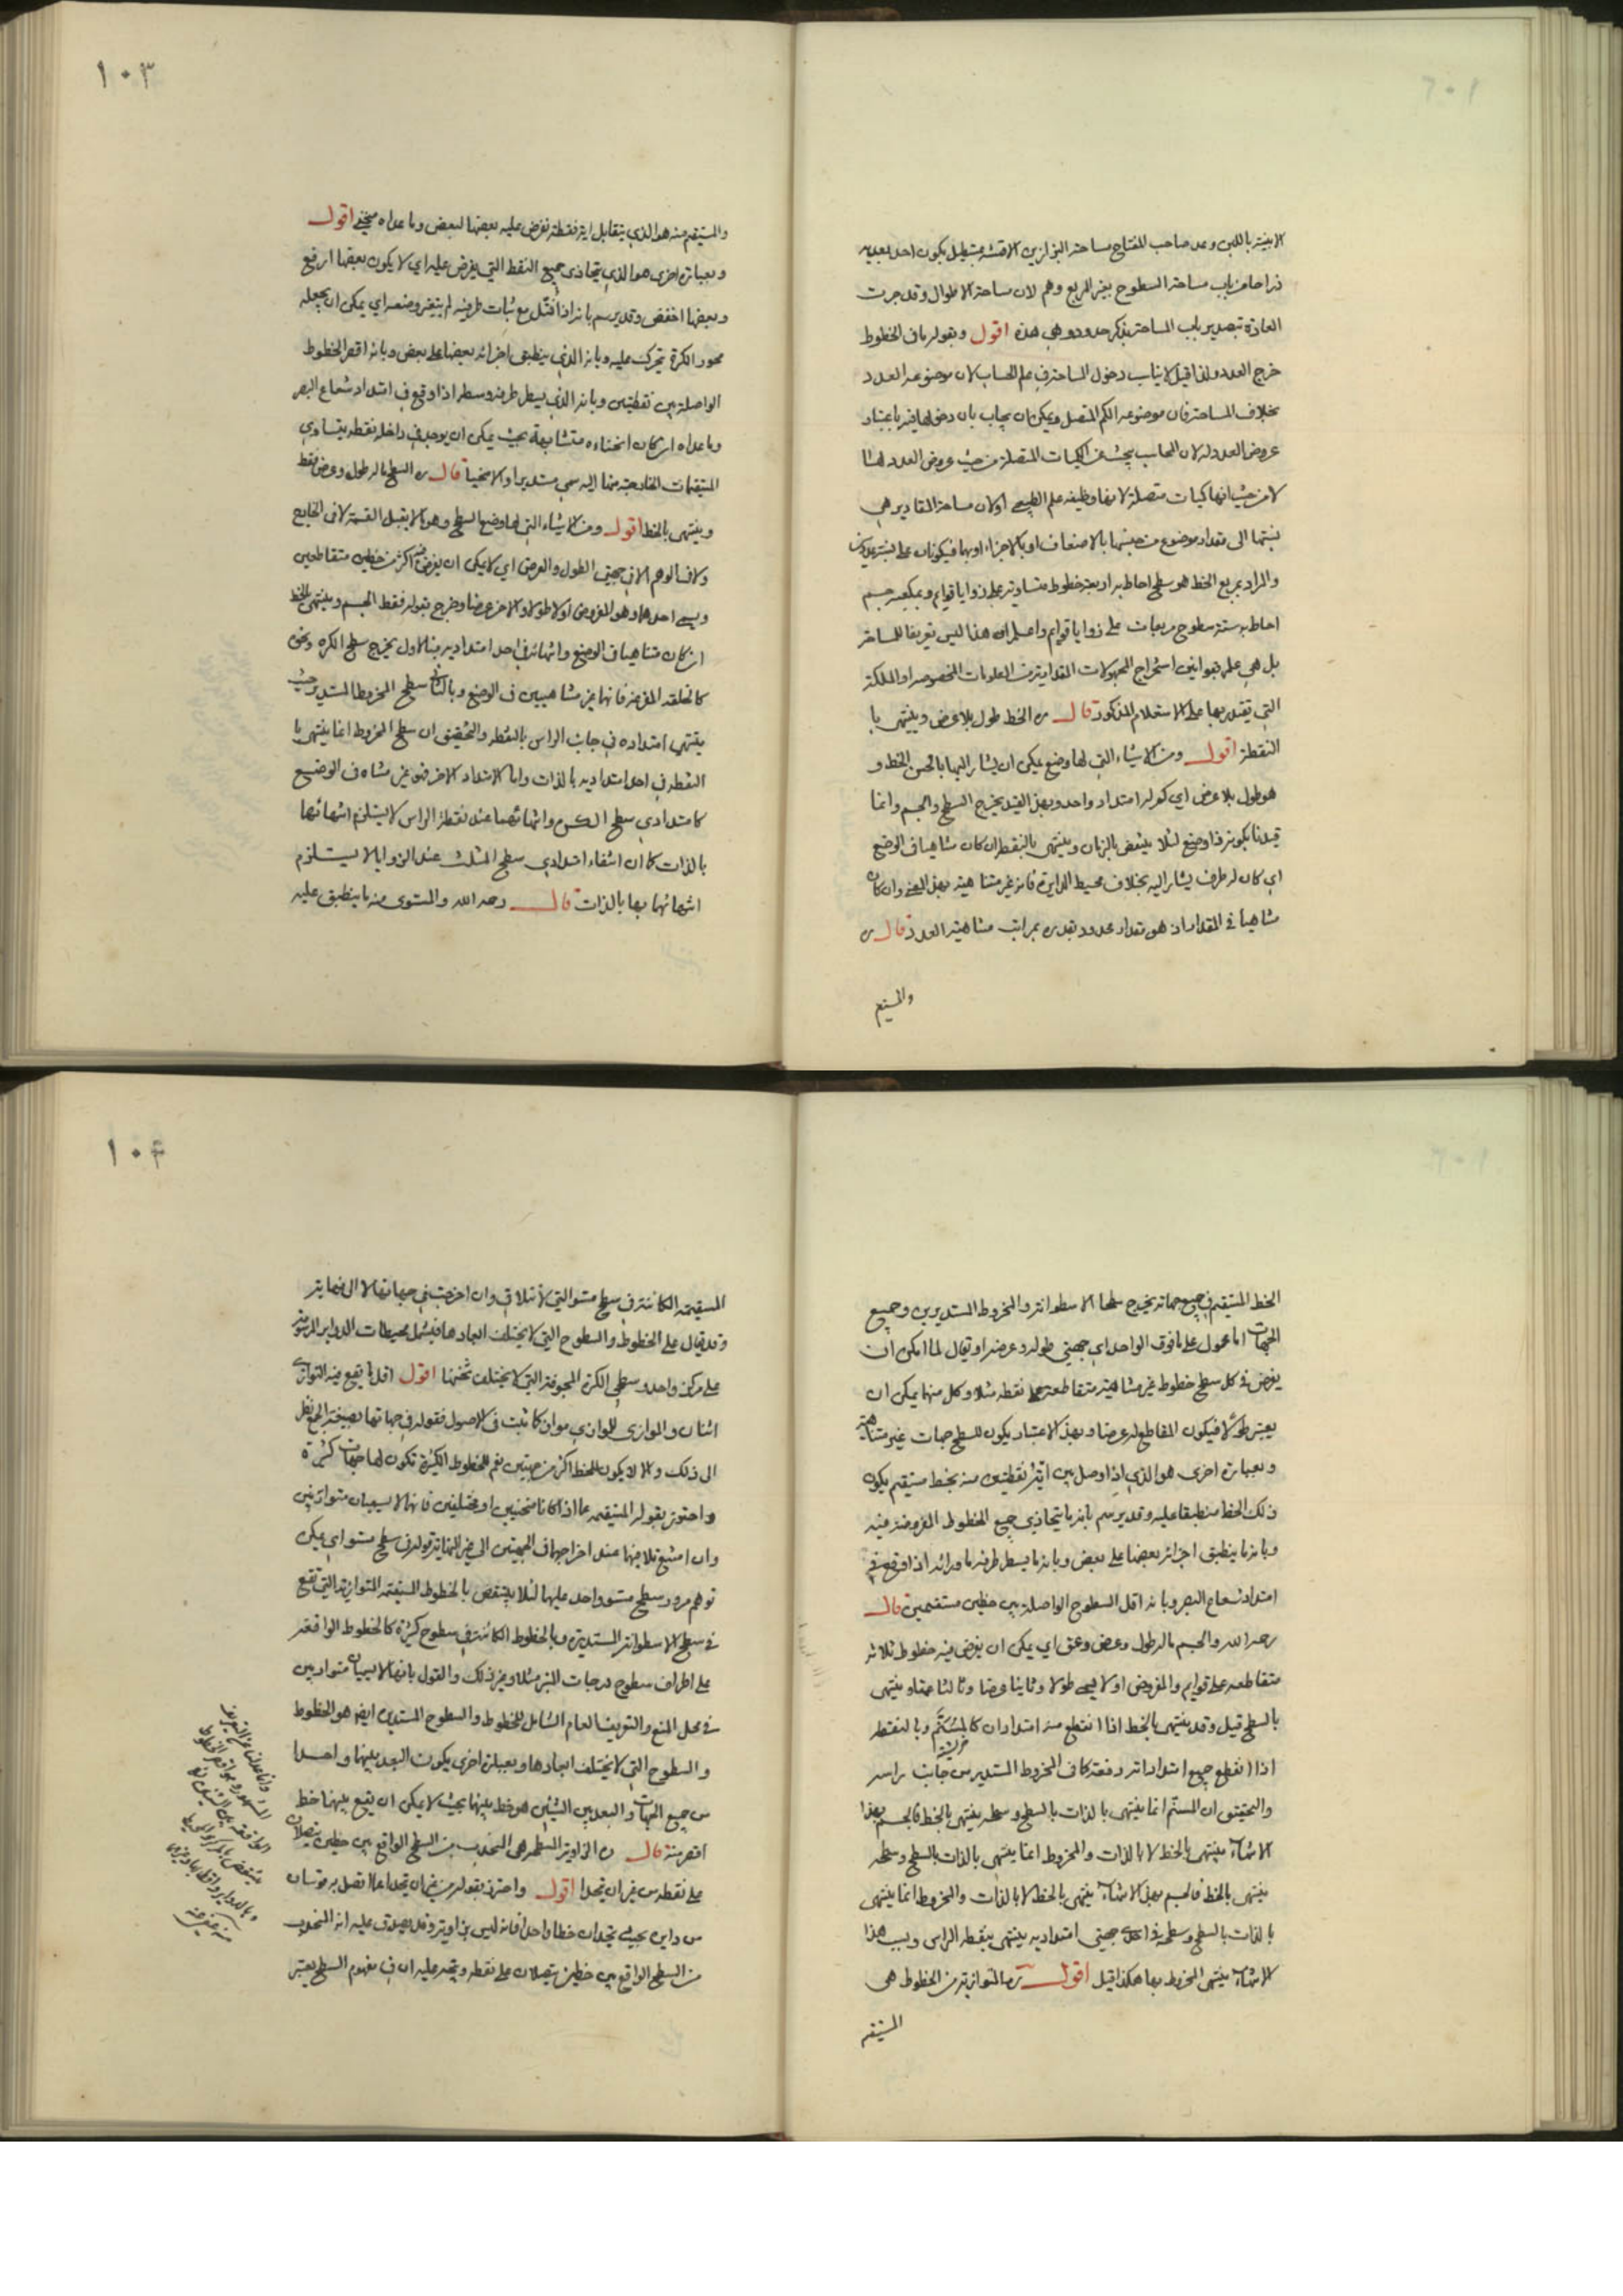 الابنية باللبن وعد صاحب المفتاح مساحة البزازين الاقمشة بمستطيل يكون احد بعديه
ذراعا من باب مساحة السطوح بغير المربع وهم لان مساحة الاطوال وقد جرت
العادة بتصدير باب المساحة بذكر حدود وهي هذه اقول وبقوله مان الخطوط
خرج العدد ولذا قيل لا يناسب دخول المساحة في علم الحساب لان موضوعه العدد
بخلاف المساحة فان موضوعه الكم المتصل ويمكن ان يجاب بان دخولها فيه باعتبار
عروض العدد له لان المحاسب يبحث عن الكميات المتصلة من حيث عروض العدد لها
لا من حيث انها كميات متصلة لانها وظيفة علم الطبيعي اولان مساحة المقادير هي
نسبتها الى مقدار موضوع من جنسها بالاضعاف او بالاجزاء او بهما فيكونان على نسبة عددين
والمراد بمربع الخط هو سطح احاط به اربعة خطوط متساوية على زوايا قوايم وبمكعبه جسم
احاط به ستة سطوح مربعات على زوايا قوايم واعلم ان هذا ليس تعريفا للمساحة
بل هي علم بقوانين استخراج المجهولات المقدارية من المعلومات المخصوصة او الملكة
التي يقتدر بها على الاستعلام المذكور قال ره الخط طول بلا عرض وينتهي با
النقطة اقول ومن الاشياء التي لها وضع يمكن ان يشار اليها بالحس الخط و
هو طول بلا عرض اي كم له امتداد واحد وبهذ القيد يخرج السطح والجسم وانما
قيدنا بكونه ذا وضع لئلا ينتقض بالزمان وينتهي بالنقطة ان كان متناهيا في الوضع
اي كان له طرف يشار اليه بخلاف محيط الدايرة فانه غير متناهية بهذ المعنى وان كان
متناهيا في المقدار اذ هو مقدار محدود بقدره بمراتب متناهية العدد قال ره
والمستقيم
١٠٣
والمستقيم منه هو الذي يتقابل اية نقطة تفرض عليه بعضها لبعض وما عداه منحني اقول
وبعبارة اخرى هو الذي يتحاذى جميع النقط التي يفرض عليه اي لا يكون بعضها ارفع
وبعضها اخفض وقد يرسم بانه اذا فتل مع ثبات طرفيه لم يتغير وضعه اي يمكن ان يجعله
محور الكرة يتحرك عليه وبانه الذي ينطبق اجزائه بعضها على بعض وبانه اقصر الخطوط
الواصلة بين نقطتين وبانه الذي يستر طرفه وسطه اذا وقع في امتداد شعاع البصر
وما عداه ان كان انحناءه متشابهة بحيث يمكن ان يوجد في داخله نقطة يتساوى
المستقيمات الخارجة منها اليه سمي مستديرا والا منحنيا قال ره السطح ماله طول وعرض فقط
وينتهي بالخط اقول ومن الاشياء التي لها وضع السطح وهو ما لا يقبل القسمة لا في الخارج
ولا في الوهم الا في جهتي الطول والعرض اي لا يمكن ان يفرض فيه اكثر من خطين متقاطعين
ويسمى احدهما وهو المفروض اولا طولا والاخر عرضا وخرج بقوله فقط الجسم وينتهي بالخط
ان كان متناهيا في الوضع وانتهائه في احد امتداديه فبالاول يخرج سطح الكره ونحوه
كالحلقة المفرغة فانها غير متناهيين في الوضع وبالثاني سطح المخروط المستدير حيث
ينتهي امتداده في جانب الراس بالنقطة والتحقيق ان سطح المخروط انما ينتهي با
النقطة في احد امتداديه بالذات واما الامتداد الاخر فهو غير متناه في الوضع
كامتدادي سطح الكره وانتهائهما عند نقطة الراس لا يستلزم انتهائها
بالذات كما ان انتفاء امتدادي سطح المثلث عند الزوايا لا يستلزم
انتهائهما بها بالذات قال رحمه الله والمستوي منه ما ينطبق عليه
الخط المستقيم في جميع جهاته يخرج سطحا الاسطوانة والمخروط المستديرين وجميع
الجهات اما محمول على ما فوق الواحد اي جهتي طوله وعرضه او يقال لما امكن ان
يفرض في كل سطح خطوط غير متناهية متقاطعة على نقطة مثلا وكل منها يمكن ان
يعتبر طولا فيكون المقاطع له عرضا وبهذ الاعتبار يكون للسطح جهات غير متناهية
وبعبارة اخرى هو الذي اذا وصل بين اية نقطتين منه بخط مستقيم يكون
ذلك الخط منطبقا عليه وقد يرسم بانه ما يتحاذى جميع الخطوط المفروضة فيه
وبانه ما ينطبق اجزائه بعضها على بعض وبانه ما يستر طرفه ما ورائه اذا وقع في
امتداد شعاع البصر وبانه اقل السطوح الواصلة بين خطين مستقيمين قال
رحمه الله والجسم ماله طول وعرض وعمق اي يمكن ان يفرض فيه خطوط ثلاثة
متقاطعة على قوايم والمفروض اولا يسمى طولا وثانيا عرضا وثالثا عمقا وينتهي
بالسطح قيل وقد ينتهي بالخط اذا انقطع منه امتدادان كالمسنم وبالنقطة
اذا انقطع جميع امتداداته دفعة كما في المخروط المستدير من جانب راسه
والتحقيق ان المسنم انما ينتهي بالذات بالسطح وسطحه ينتهي بالخط فالجسم بهذا
الانتهاء ينتهي بالخط لا بالذات والمخروط انما ينتهي بالذات بالسطح وسطحه
ينتهي بالخط فالجسم بهذ الانتهاء ينتهي بالخط لا بالذات والمخروط انما ينتهي
بالذات بالسطح وسطحه في احدى جهتي امتداديه ينتهي بنقطة الراس وبسبب هذا
الانتهاء ينتهي المخروط بها هكذا قيل اقول ره المتوازية من الخطوط هي
المستقيمة
١٠٤
المستقيمة الكائنة في سطح مستو التي لا تتلاقى وان اخرجت في جهاتها لا الى نهاية
وقد يقال على الخطوط والسطوح التي لا يختلف ابعادها فيشمل محيطات الدواير المرسومة
على مركز واحد وسطحي الكرة المجوفة التي لا يختلف ثخنها اقول اقل ما يقع فيه التوازي
اثنان والموازي للموازي مواز كما ثبت في الاصول فقوله في جهاتها بصيغة الجمع نظر
الى ذلك والا لا يكون للخط اكثر من جهتين نعم للخطوط الكثيرة تكون لها جهات كثيرة
واحترز بقوله المستقيمة عما اذا كانا منحنيين او مختلفين فانهما لا يسميان متوازيين
وان امتنع تلاقيهما عند اخراجهما في الجهتين الى غير النهاية وقوله في سطح مستو اي يمكن
توهم مرور سطح مستو واحد عليهما لئلا ينتقض بالخطوط المستقيمة المتوازية التي تقع
في سطح الاسطوانة المستديرة وبالخطوط الكائنة في سطوح كثيرة كالخطوط الواقعة
على اطراف سطوح درجات المنبر مثلا وغير ذلك والقول بانهما لا يسميان متوازيين
في محل المنع والتعريف العام الشامل للخطوط والسطوح المستديرة ايضا هو الخطوط
والسطوح التي لا يختلف ابعادها وبعبارة اخرى يكون البعد بينهما واحدا
من جميع الجهات والبعد بين الشيئين هو خط بينهما بحيث لا يمكن ان يقع بينهما خط
اقصر منه قال ره الزاوية المسطحة هي المنحدب من السطح الواقع بين خطين يتصلان
على نقطة من غير ان يتحدا اقول واحترز بقوله من غير ان يتحدا عما اتصل به قوسان
من دايرة بحيث يتحدان خطا واحدا فانه ليس بزاوية وقد يصدق عليه انه المنحدب
من السطح الواقع بين خطين يتصلان على نقطة ويتجه عليه ان في مفهوم السطح يعتبر